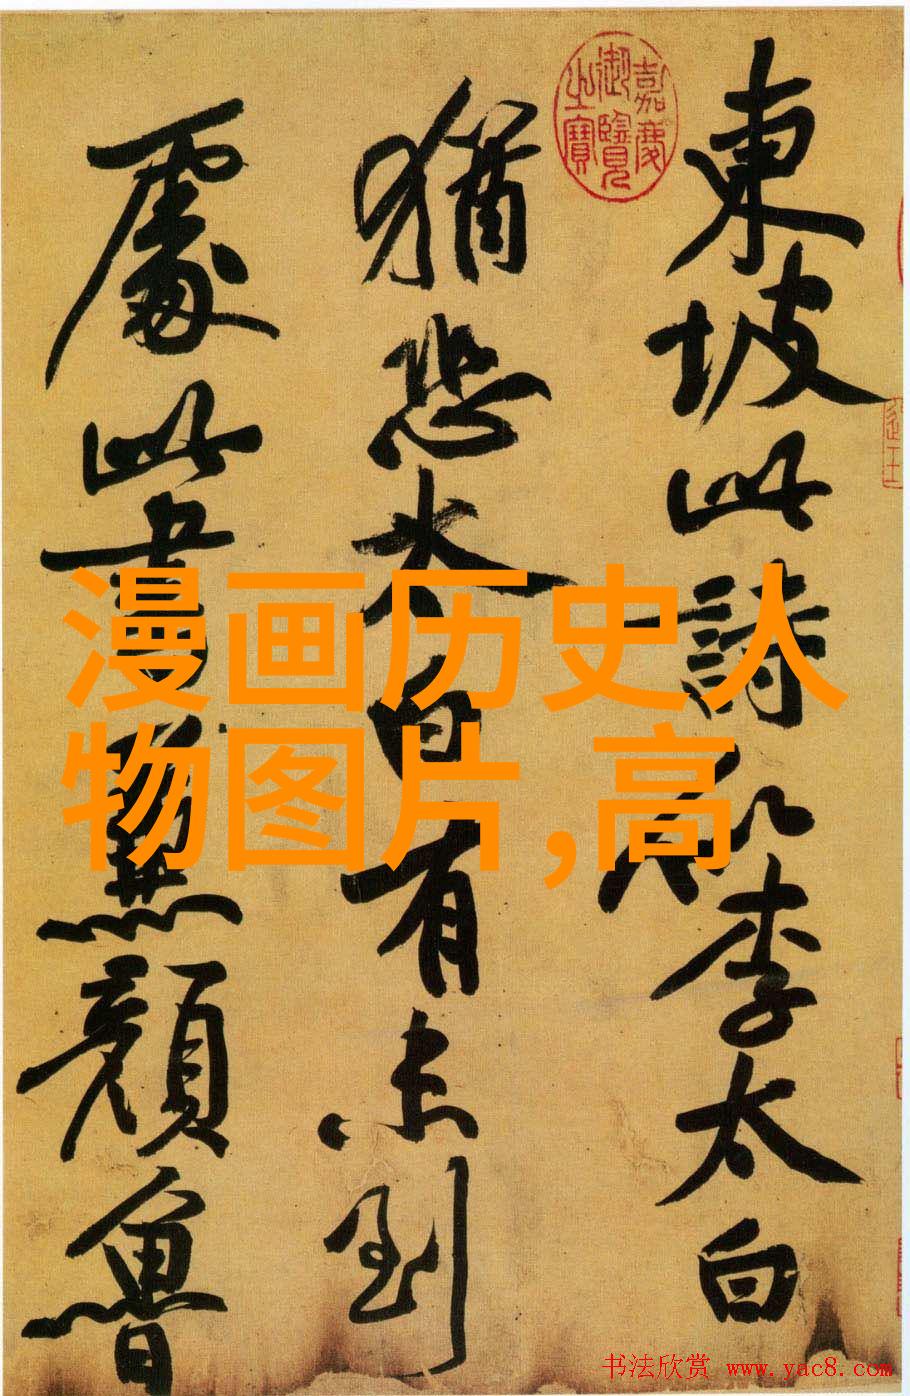 東坡此詩似李太白
猶恐太白有未到
處此書兼顏魯
嘉慶御覽之寶
漫画历史人
物图片,高
书法欣赏 www.yac8.com